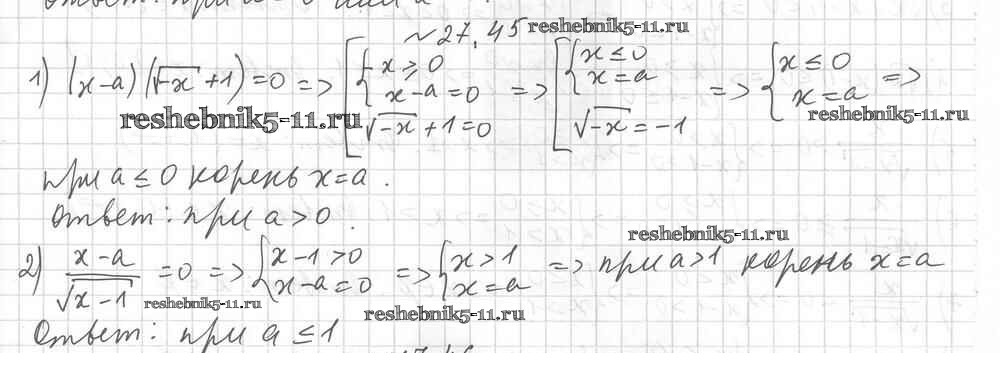 №27.45 reshebnik5-11.ru
1) (x-a)(√-x +1)=0 => [ { x ≥ 0 ; x-a=0 ; √-x +1=0 => [ { x≤0 ; x=a ; √-x = -1 => { x≤0 ; x=a =>
reshebnik5-11.ru
reshebnik5-11.ru
при a≤0 корень x=a.
Ответ: при a>0.
reshebnik5-11.ru
2) x-a / √x-1 =0 => { x-1>0 ; x-a=0 => { x>1 ; x=a => при a>1 корень x=a
reshebnik5-11.ru
reshebnik5-11.ru
Ответ: при a≤1